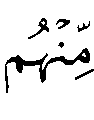 مِّنْهُم